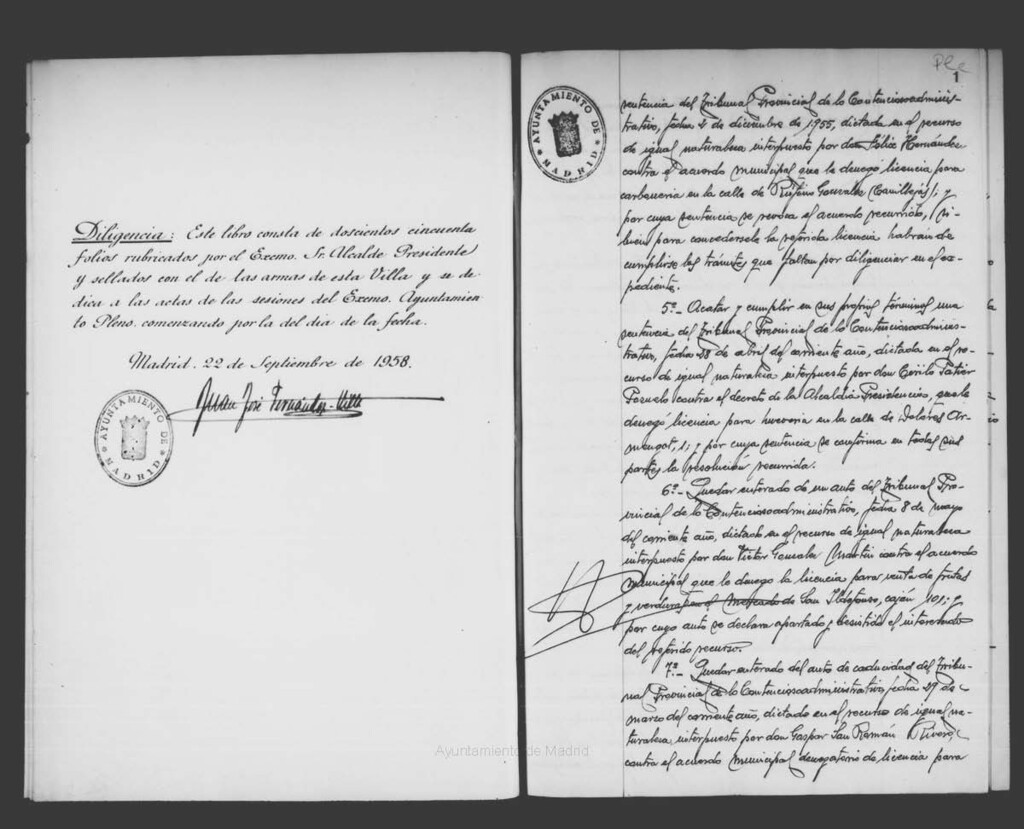 Diligencia: Este libro consta de doscientos cincuenta
folios rubricados por el Excmo. Sr. Alcalde Presidente
y sellados con el de las armas de esta Villa y se de-
dica a las actas de las sesiones del Excmo. Ayuntamien-
to Pleno, comenzando por la del dia de la fecha.
Madrid, 22 de Septiembre de 1958.
Juan José Fernández-Villa
AYUNTAMIENTO DE
MADRID
AYUNTAMIENTO DE
MADRID
1
sentencia del Tribunal Provincial de lo Contenciosoadminis-
trativo, fecha 4 de diciembre de 1955, dictada en el recurso
de igual naturaleza interpuesto por don Félix Hernández
contra el acuerdo municipal que le denegó licencia para
carbonería en la calle de Rufino González (Canillejas); y
por cuya sentencia se revoca el acuerdo recurrido, si
bien para concedersele la referida licencia habrán de
cumplirse los trámites que faltan por diligenciar en el ex-
pediente.
5º.- Acatar y cumplir en sus propios términos una
sentencia del Tribunal Provincial de lo Contenciosoadminis-
trativo, fecha 28 de abril del corriente año, dictada en el re-
curso de igual naturaleza interpuesto por don Cirilo
Pozuelo contra el decreto de la Alcaldía Presidencia, que le
denegó licencia para huevería en la calle de Dolores Ar-
mengot, 1; y por cuya sentencia se confirma en todas sus
partes la resolución recurrida.
6º.- Quedar enterado de un auto del Tribunal Pro-
vincial de lo Contenciosoadministrativo, fecha 8 de mayo
del corriente año, dictado en el recurso de igual naturaleza
interpuesto por don Víctor González Martín contra el acuerdo
municipal que le denegó la licencia para venta de frutas
y verduras en el Mercado de San Ildefonso, cajón 101; y
por cuyo auto se declara apartado y desistido el interesado
del referido recurso.
7º.- Quedar enterado del auto de caducidad del Tribu-
nal Provincial de lo Contenciosoadministrativo, fecha 29 de
marzo del corriente año, dictado en el recurso de igual na-
turaleza interpuesto por don Gaspar San Román Rivero,
contra el acuerdo municipal denegatorio de licencia para
Ayuntamiento de Madrid